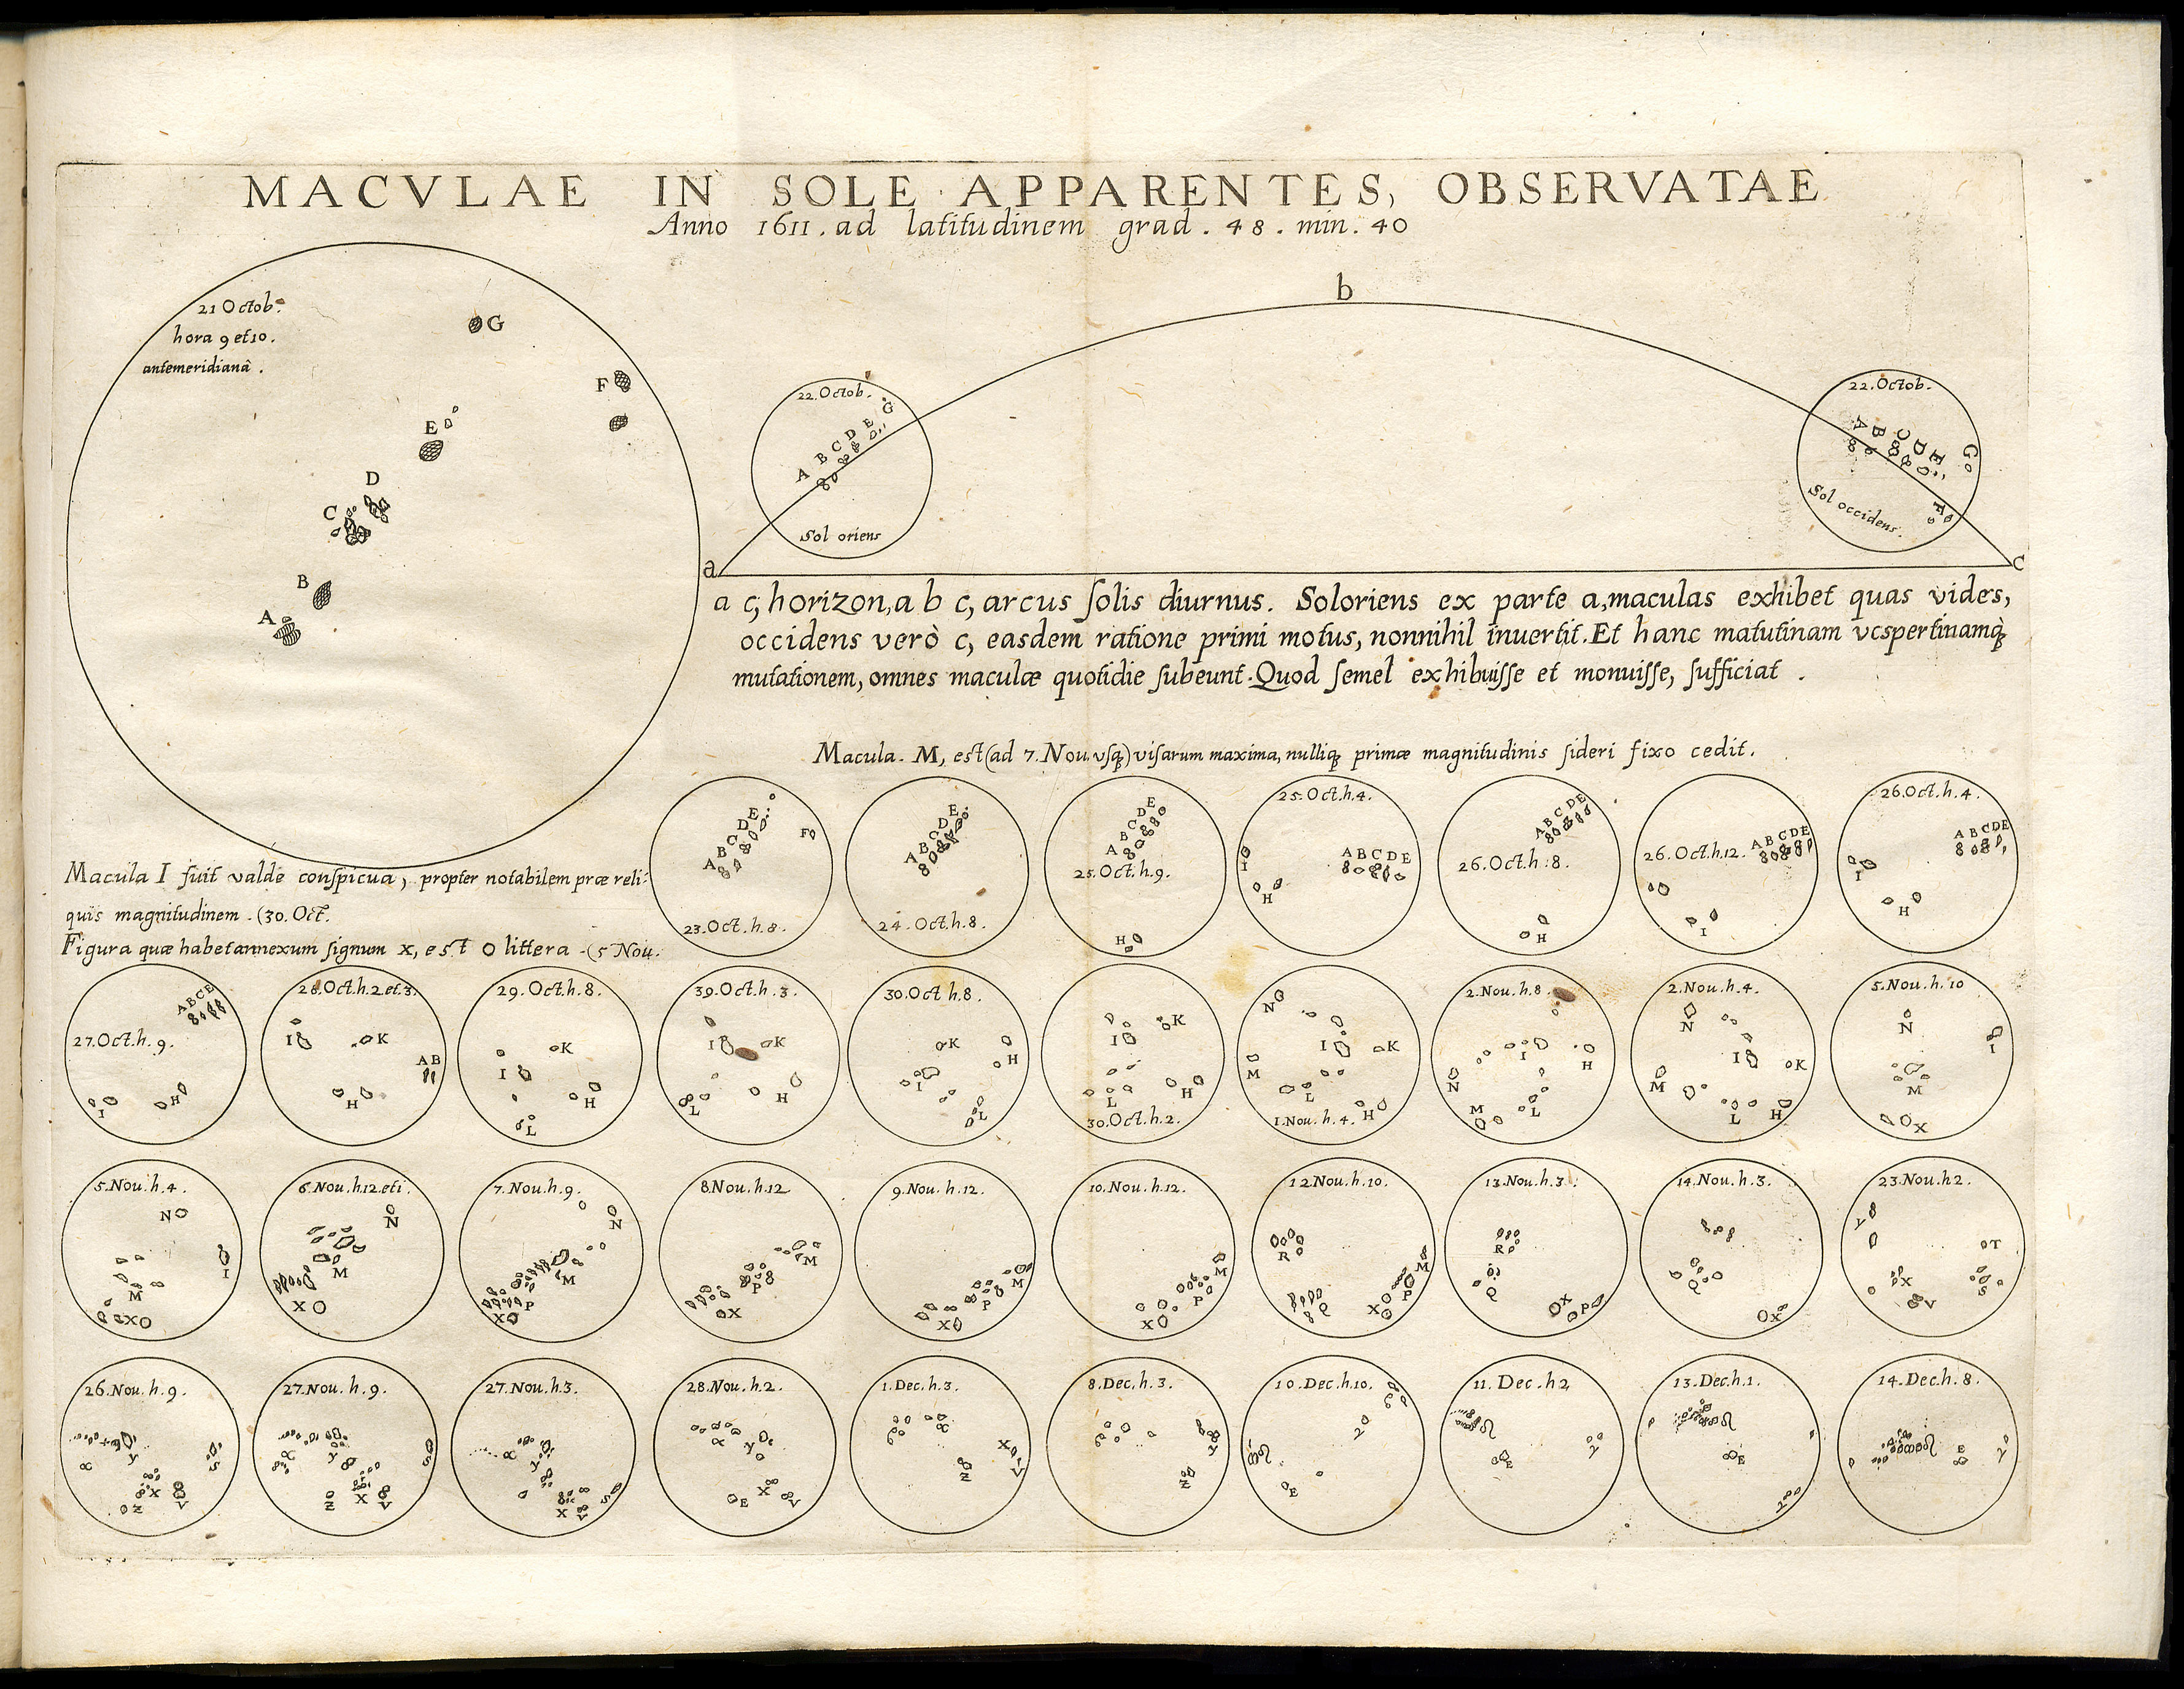 MACVLAE IN SOLE APPARENTES, OBSERVATAE
Anno 1611. ad latitudinem grad. 48. min. 40
21 Octob.
hora 9 et 10.
antemeridianâ.
G
F
E
D
C
B
A
b
22. Octob.
A B C D E G
Sol oriens
22. Octob.
A B C D E G
F
Sol occidens.
a
c
a c, horizon, a b c, arcus ſolis diurnus. Sol oriens ex parte a, maculas exhibet quas vides,
occidens verò c, easdem ratione primi motus, nonnihil inuertit. Et hanc matutinam vespertinamq̀ꝫ
mutationem, omnes maculæ quotidie ſubeunt. Quod ſemel exhibuiſſe et monuiſſe, ſufficiat.
Macula. M, est (ad 7. Nou. vſqꝫ) viſarum maxima, nulliqꝫ primæ magnitudinis ſideri fixo cedit.
Macula I fuit valde conſpicua, propter notabilem præ reli:
quis magnitudinem. (30. Oct.
Figura quæ habet annexum ſignum x, est O littera. (5 Nou.
A B C D E F
23. Oct. h. 8.
A B C D E
24. Oct. h. 8.
A B C D E
25. Oct. h. 9.
H
25. Oct. h. 4.
I H A B C D E
A B C D E
26. Oct. h. 8.
H
26. Oct. h. 12. A B C D E
I
26. Oct. h. 4.
A B C D E
I H
A B C E
27. Oct. h. 9.
I H
28. Oct. h. 2. et. 3.
I K A B
H
29. Oct. h. 8.
K
I H
L
39. Oct. h. 3.
I K
L H
30. Oct h. 8.
K H
I L
K
I
L H
30. Oct. h. 2.
N
I K
M L H
1. Nou. h. 4.
2. Nou. h. 8.
I H
N
M L
2. Nou. h. 4.
N
I K
M L H
5. Nou. h. 10
N
I
M
O X
5. Nou. h. 4.
N
I
M
X O
6. Nou. h. 12. et 1.
N
M
X O
7. Nou. h. 9.
N
M
P
X
8. Nou. h. 12
M
P
X
9. Nou. h. 12.
M
P
X
10. Nou. h. 12.
M
P
X
12. Nou. h. 10.
R M
Q X P
13. Nou. h. 3.
R
Q X P
14. Nou. h. 3.
Q
X
23. Nou. h 2.
y T
X S
V
26. Nou. h. 9.
α y S
X V
Z
27. Nou. h. 9.
α y S
Z X V
27. Nou. h. 3.
α y
S
X V
28. Nou. h. 2.
α y
X
E V
1. Dec. h. 3.
α
X
Z V
8. Dec. h. 3.
Z
10. Dec. h. 10.
E
11. Dec. h 2
E
13. Dec. h. 1.
E
14. Dec. h. 8.
E